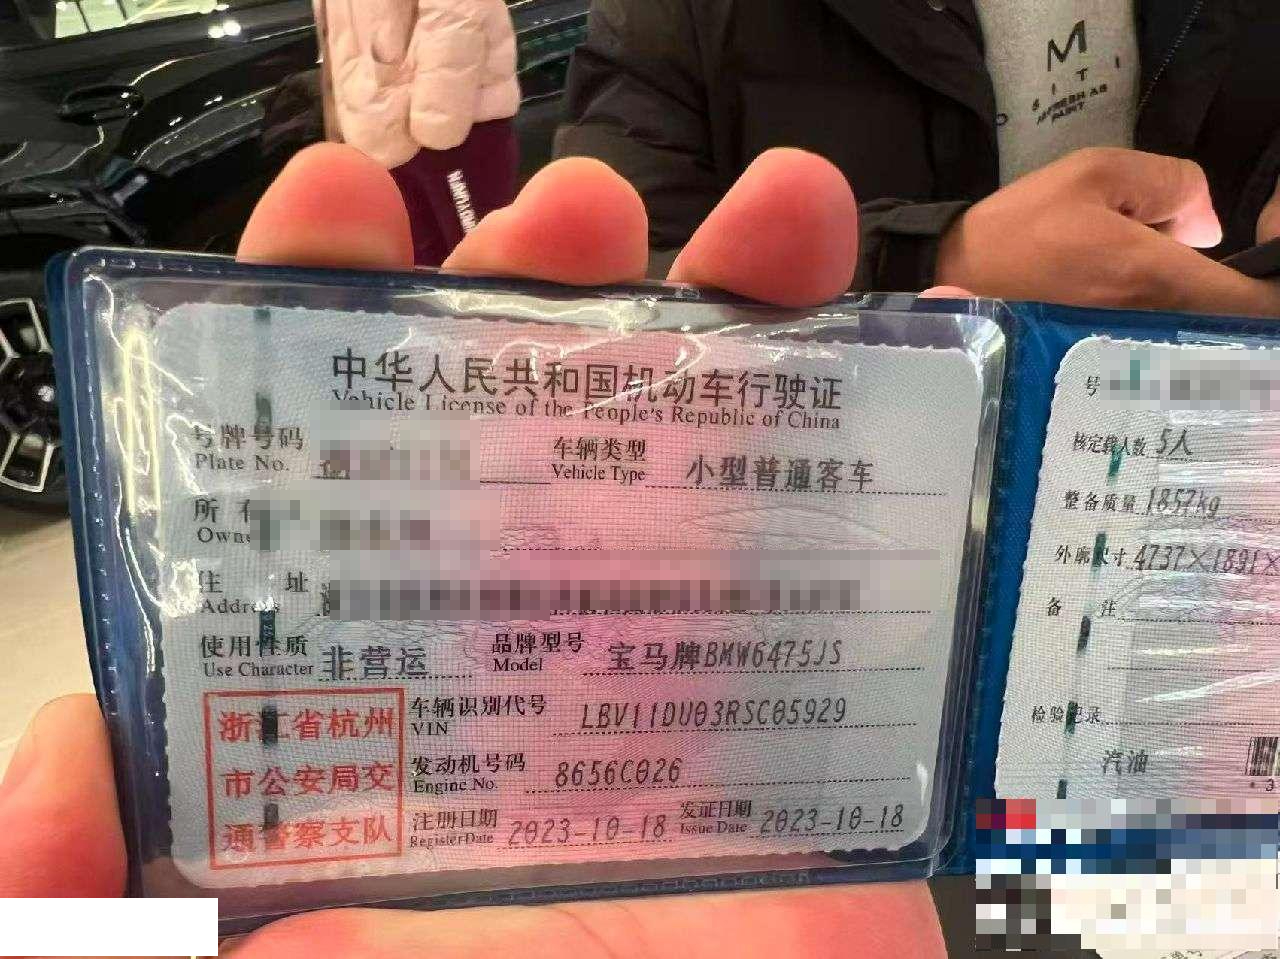 M
SITI
中华人民共和国机动车行驶证
Vehicle License of the People's Republic of China
号牌号码
Plate No.
车辆类型 小型普通客车
Vehicle Type
所
住 址
Address
使用性质 非营运
Use Character
品牌型号 宝马牌BMW6475JS
Model
车辆识别代号 LBV11DU03RSC05929
VIN
发动机号码 8656C026
Engine No.
注册日期 2023-10-18
Register Date
发证日期 2023-10-18
Issue Date
浙江省杭州
市公安局交
通警察支队
号
核定载人数 5人
整备质量 1857kg
外廓尺寸 4737×1891×
备 注
检验记录
汽油